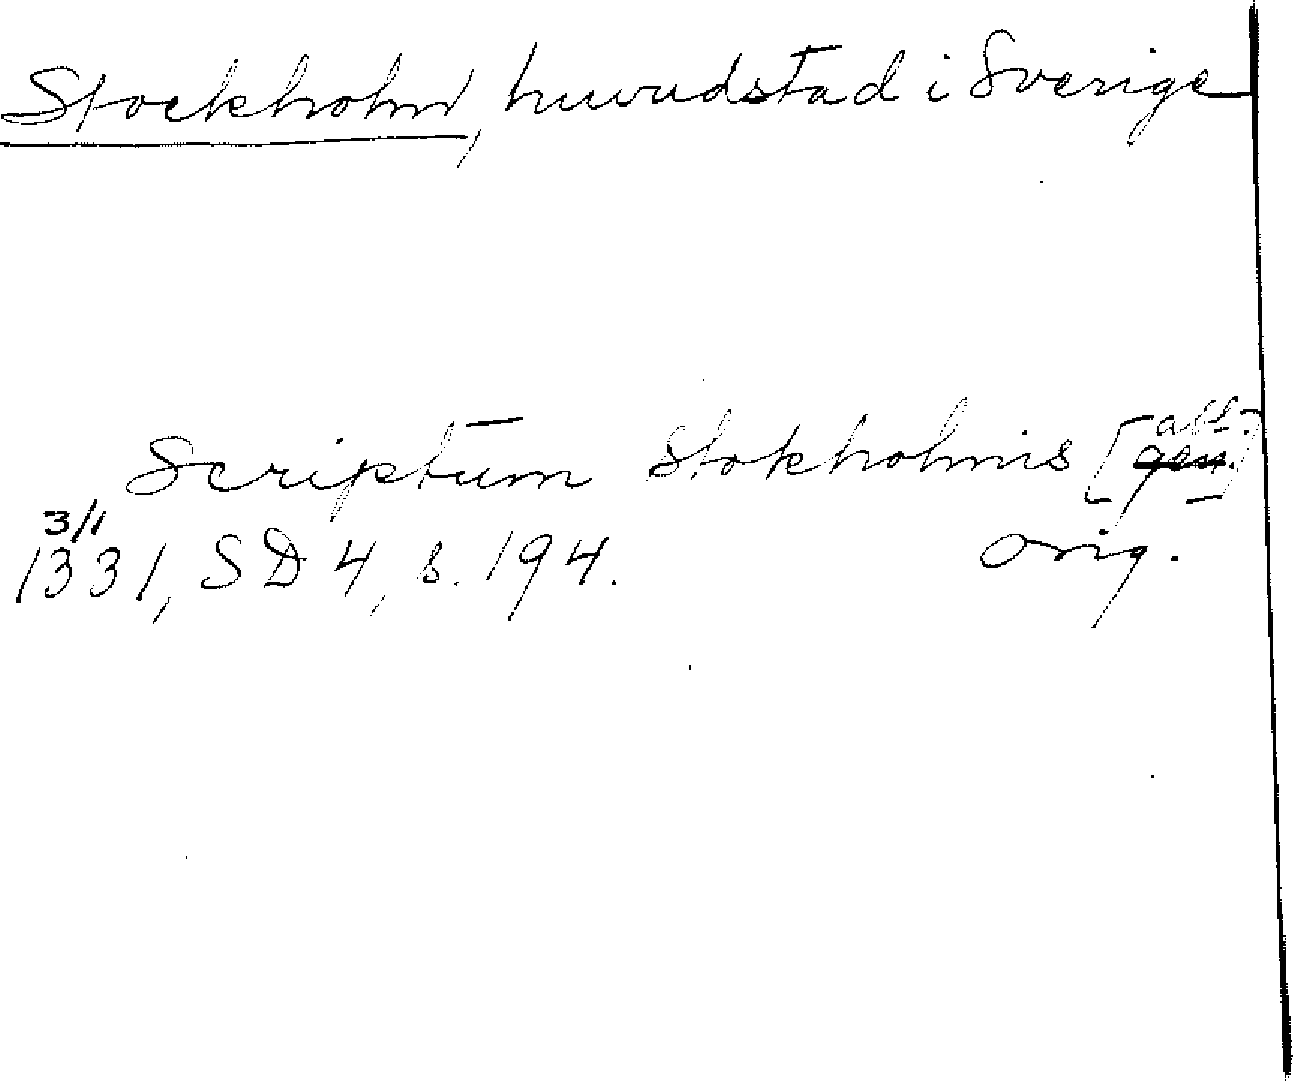 Stockholm, huvudstad i Sverige
Scriptum Stokholmis [abl.]
3/1
1331, SD 4, s. 194. orig.